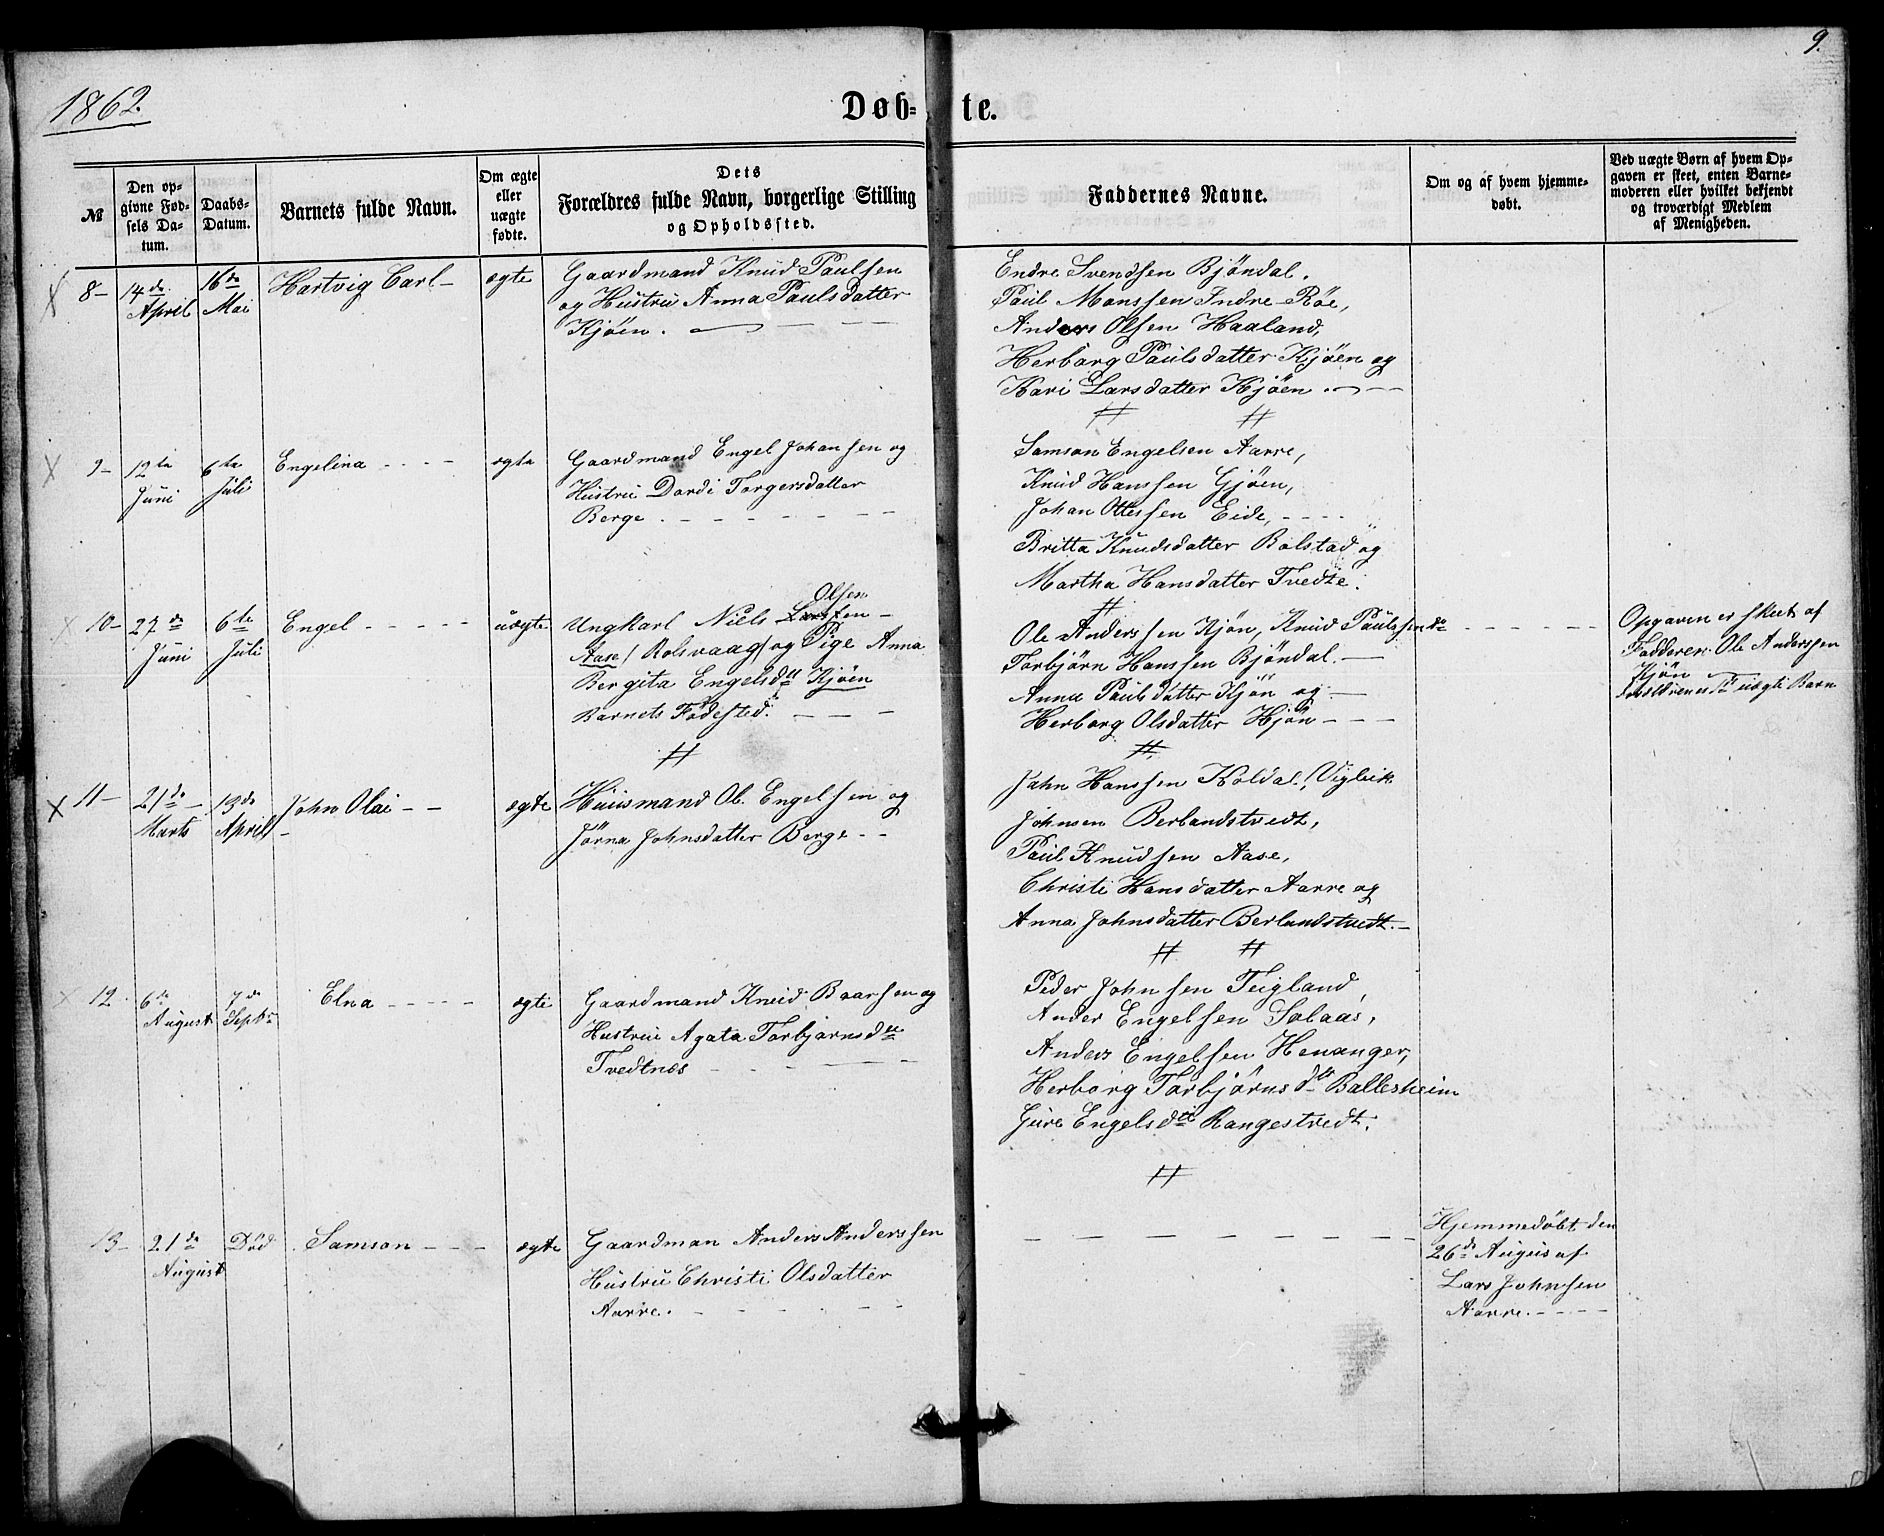 9.
1862.
Døb- te.
№
Den op-
givne Fød-
sels Da-
tum.
Daabs-
Datum.
Barnets fulde Navn.
Om ægte
eller
uægte
fødte.
Dets
Forældres fulde Navn, borgerlige Stilling
og Opholdssted.
Faddernes Navne.
Om og af hvem hjemme-
døbt.
Ved uægte Børn af hvem Op-
gaven er skeet, enten Barne-
moderen eller hvilket bekjendt
og troværdigt Medlem
af Menigheden.
8- 14de April 16de Mai Hartvig Carl- ægte
Gaardmand Knud Paulsen
og Hustru Anna Paulsdatter
Kjøen.
Endre Svendsen Bjöndal.
Paul Monssen Indre-Röe,
Anders Olsen Haaland,
Herborg Paulsdatter Kjöen og
Kari Larsdatter Kjöen.
9- 12te Juni 6te Juli Engelina ægte
Gaardmand Engel Johansen og
Hustru Dordi Torgersdatter
Berge.
Samson Engelsen Aarre,
Knud Hanssen Gjöen,
Johan Ottessen Eide,
Britta Knudsdatter Bolstad og
Martha Hansdatter Tvedte.
10- 27de Juni 6te Juli Engel uægte
Olsen
Ungkarl Niels Larssen-
Aase/ Rolsvaag/ og Pige Anna
Bergita Engelsdtr Kjöen
Barnets Födested.
Ole Anderssen Kjön, Knud Paulssen do
Torbjörn Hanssen Bjöndal.
Anna Paulsdatter Kjön og
Herborg Olsdatter Kjön
Opgaven er skeet af
Fadderen Ole Anderssen
Kjön
uægte Barn
11- 21de Marts 13de April John Olai ægte
Huusmand Ol. Engelsen og
Jörna Johnsdatter Berge
John Hanssen Koldal, Vigleik
Johnsen Berlandstvedt,
Paul Knudsen Aase,
Christi Hansdatter Aarre og
Anna Johnsdatter Berlandstvedt.
12 6de August 7de Septr Elna ægte
Gaardmand Knud Baarsen og
Hustru Agata Torbjørnsdtr
Tvedtnes
Peder Johnsen Teigland,
Ander Engelsen Solaas,
Anders Engelsen Henanger,
Herborg Torbjörnsdtr Ballesheim
Gure Engelsdtr Rangestvedt.
13- 21de August Död Samson ægte
Gaardman Anders Anderssen
Hustru Christi Olsdatter
Aarre.
Hjemmedöbt den
26de Augus af
Lars Johnsen
Aarre.